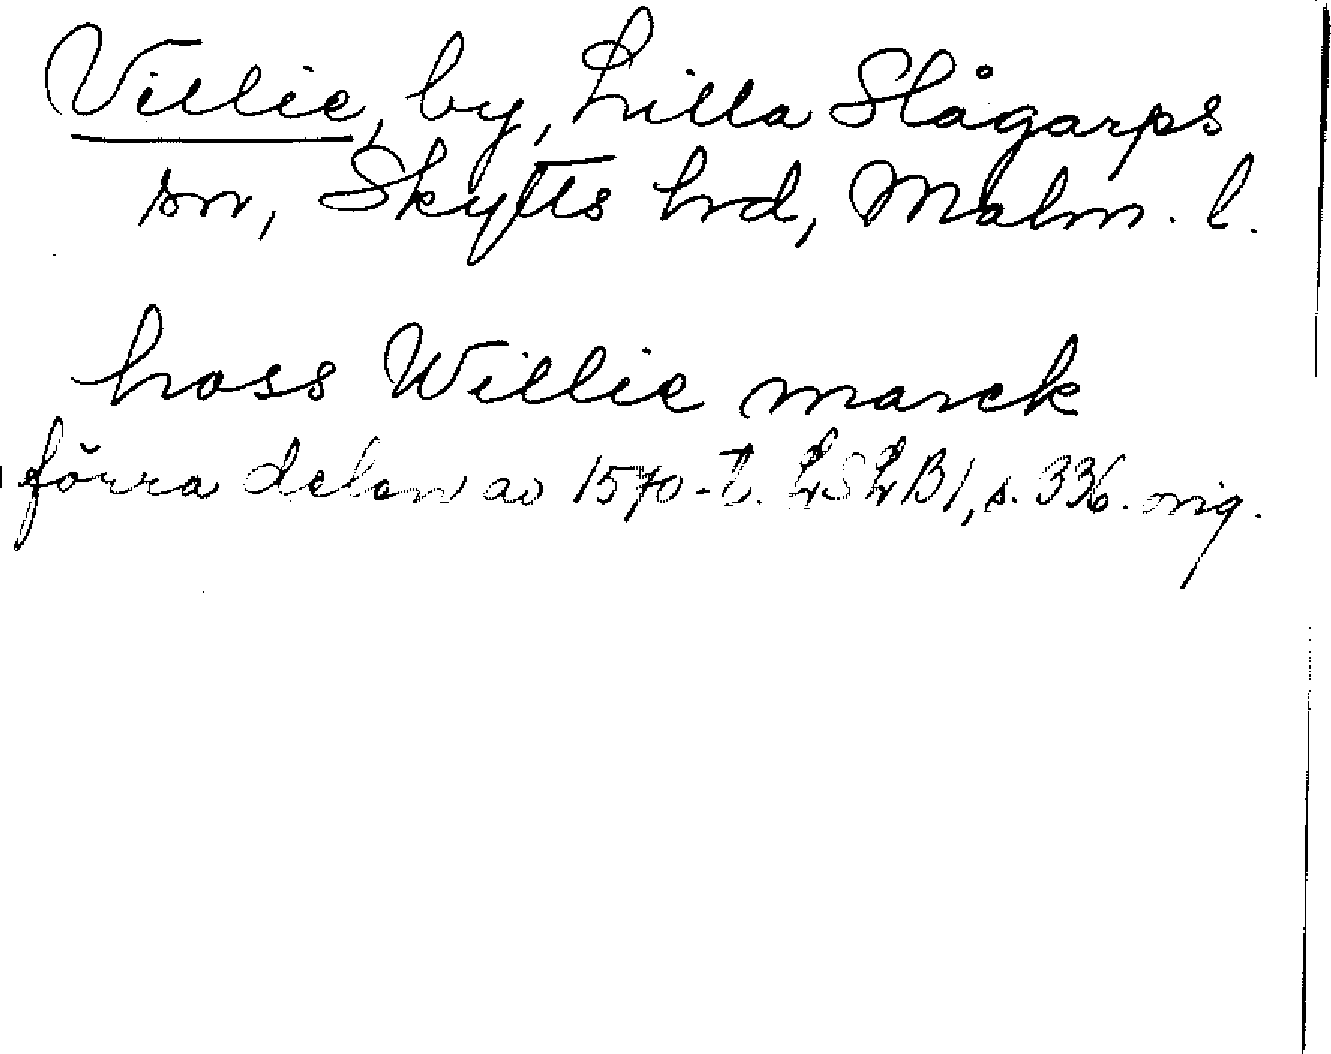 Villie, by, Lilla Slågarps
sn, Skytts hrd, Malm. l.
hoss Willie marck
förra delen av 1570-t. LSLB1, s. 336. orig.